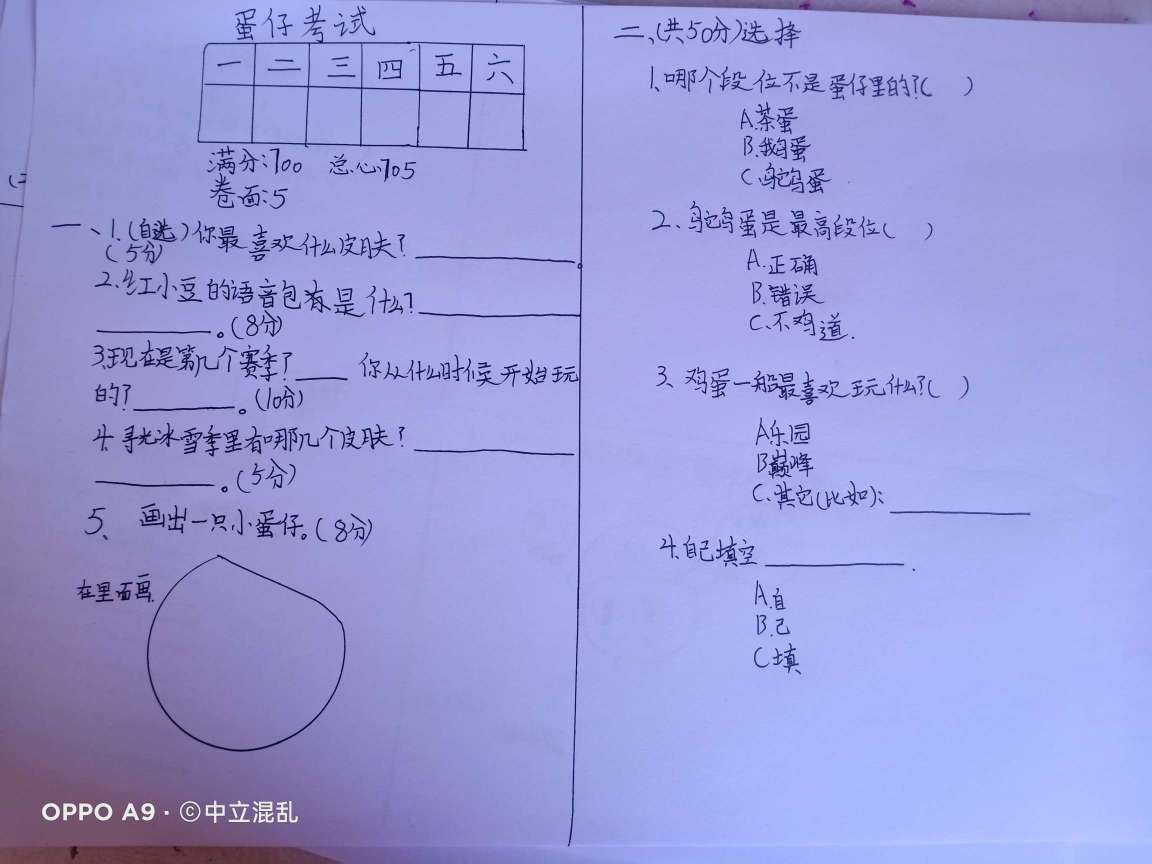 蛋仔考试
一 二 三 四 五 六
满分:100 总心105
卷面:5
一、1.(自选)你最喜欢什么皮肤?
(5分)
2.红小豆的语音包有是什么?
。(8分)
3.现在是第几个赛季? 你从什么时候开始玩
的? 。(10分)
4.寻光冰雪季里有哪几个皮肤?
。(5分)
5、画出一只小蛋仔。(8分)
在里面画.
二、(共50分)选择
1、哪个段位不是蛋仔里的?( )
A.茶蛋
B.鹅蛋
C.鸵鸟蛋
2、鸵鸟蛋是最高段位( )
A.正确
B.错误
C.不鸡道.
3、鸡蛋一般最喜欢玩什么?( )
A.乐园
B.巅峰
C.其它(比如):
4.自己填空 .
A.自
B.己
C.填
OPPO A9 · ©中立混乱